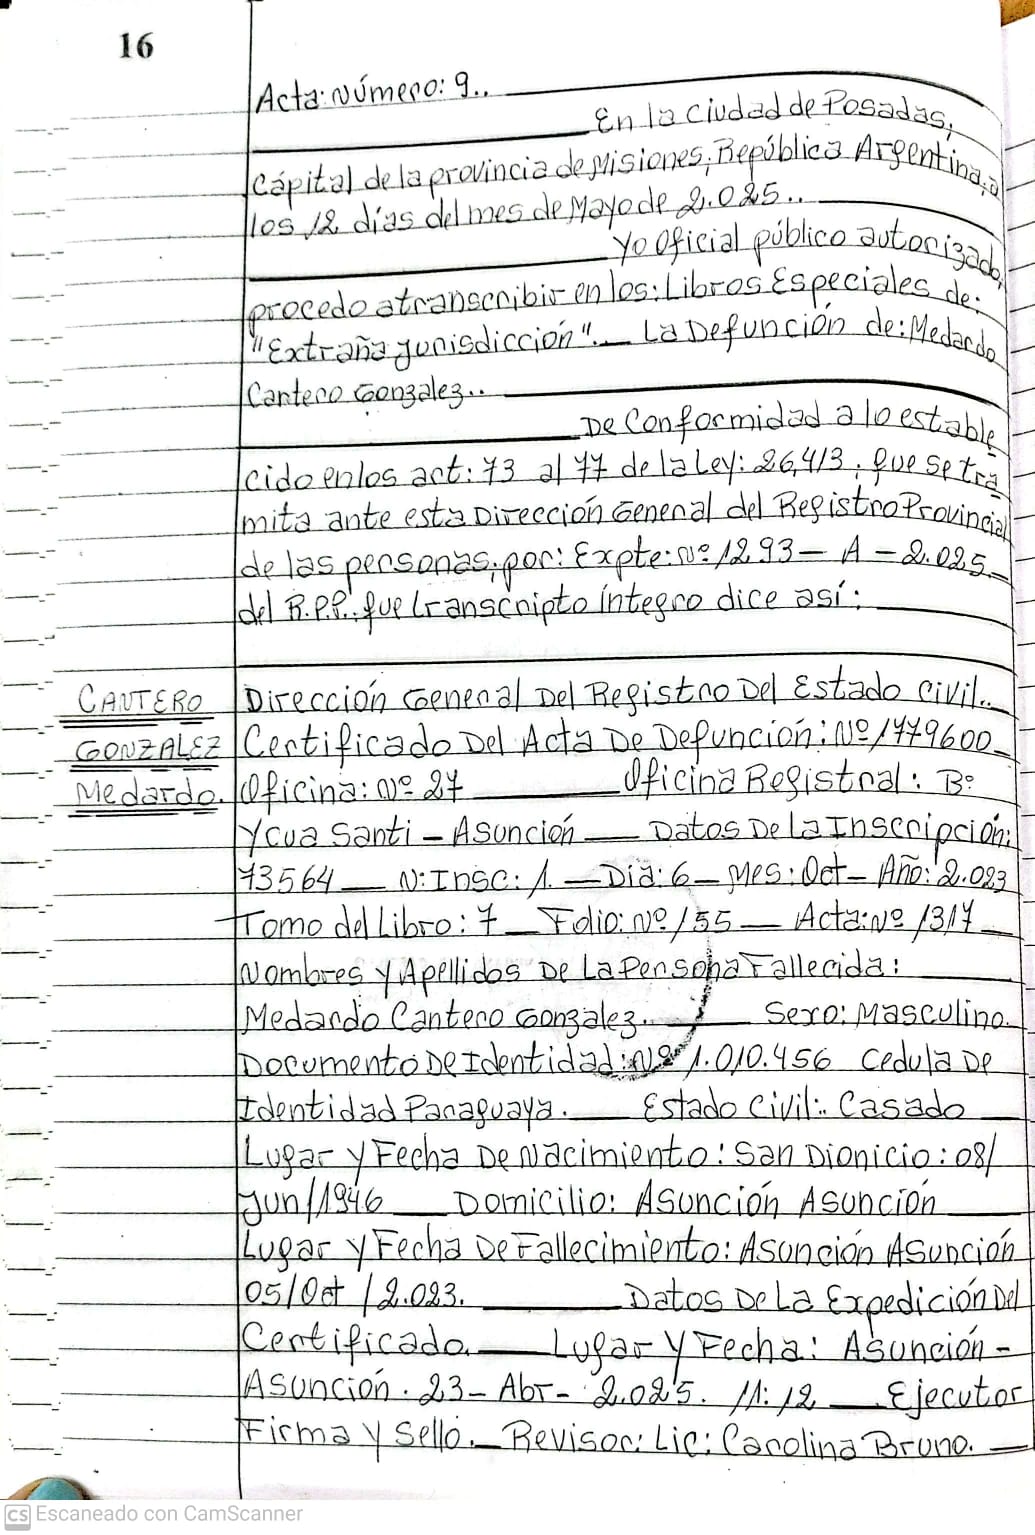 16
Acta: Número: 9..
En la Ciudad de Posadas,
Cápital de la provincia de Misiones, República Argentina, a
los 12 días del mes de Mayo de 2.025..
Yo Oficial público autorizado,
procedo a transcribir en los: Libros Especiales de:
"Extraña Jurisdicción". La Defunción de: Medardo
Cantero Gonzalez..
De Conformidad a lo estable
cido en los act: 73 al 77 de la Ley: 26,413, que se tra
mita ante esta Dirección General del Registro Provincial
de las personas, por: Expte: Nº 1293 - A - 2.025.
del R.P.P. que transcripto íntegro dice así:
CANTERO
GONZALEZ
Medardo.
Dirección General Del Registro Del Estado Civil..
Certificado Del Acta De Defunción: Nº 1779600
Oficina: Nº 27 Oficina Registral: Bº
Ycua Santi - Asunción Datos De La Inscripción:
73564 N: Insc: 1. Dia: 6 - Mes: Oct - Año: 2.023
Tomo del Libro: 7 Folio: Nº 155 Acta: Nº 1317
Nombres y Apellidos De La Persona Fallecida:
Medardo Cantero Gonzalez.. Sexo: Masculino.
Documento De Identidad: Nº 1.010.456 Cedula De
Identidad Paraguaya. Estado Civil:. Casado
Lugar y Fecha De Nacimiento: San Dionicio: 08/
Jun/1946 Domicilio: Asunción Asunción
Lugar y Fecha De Fallecimiento: Asunción Asunción
05/Oct/2.023. Datos De La Expedición Del
Certificado. Lugar y Fecha: Asunción -
Asunción. 23 - Abr - 2.025. 11:12 Ejecutor
Firma y Sello. Revisor: Lic: Carolina Bruno.
CS Escaneado con CamScanner